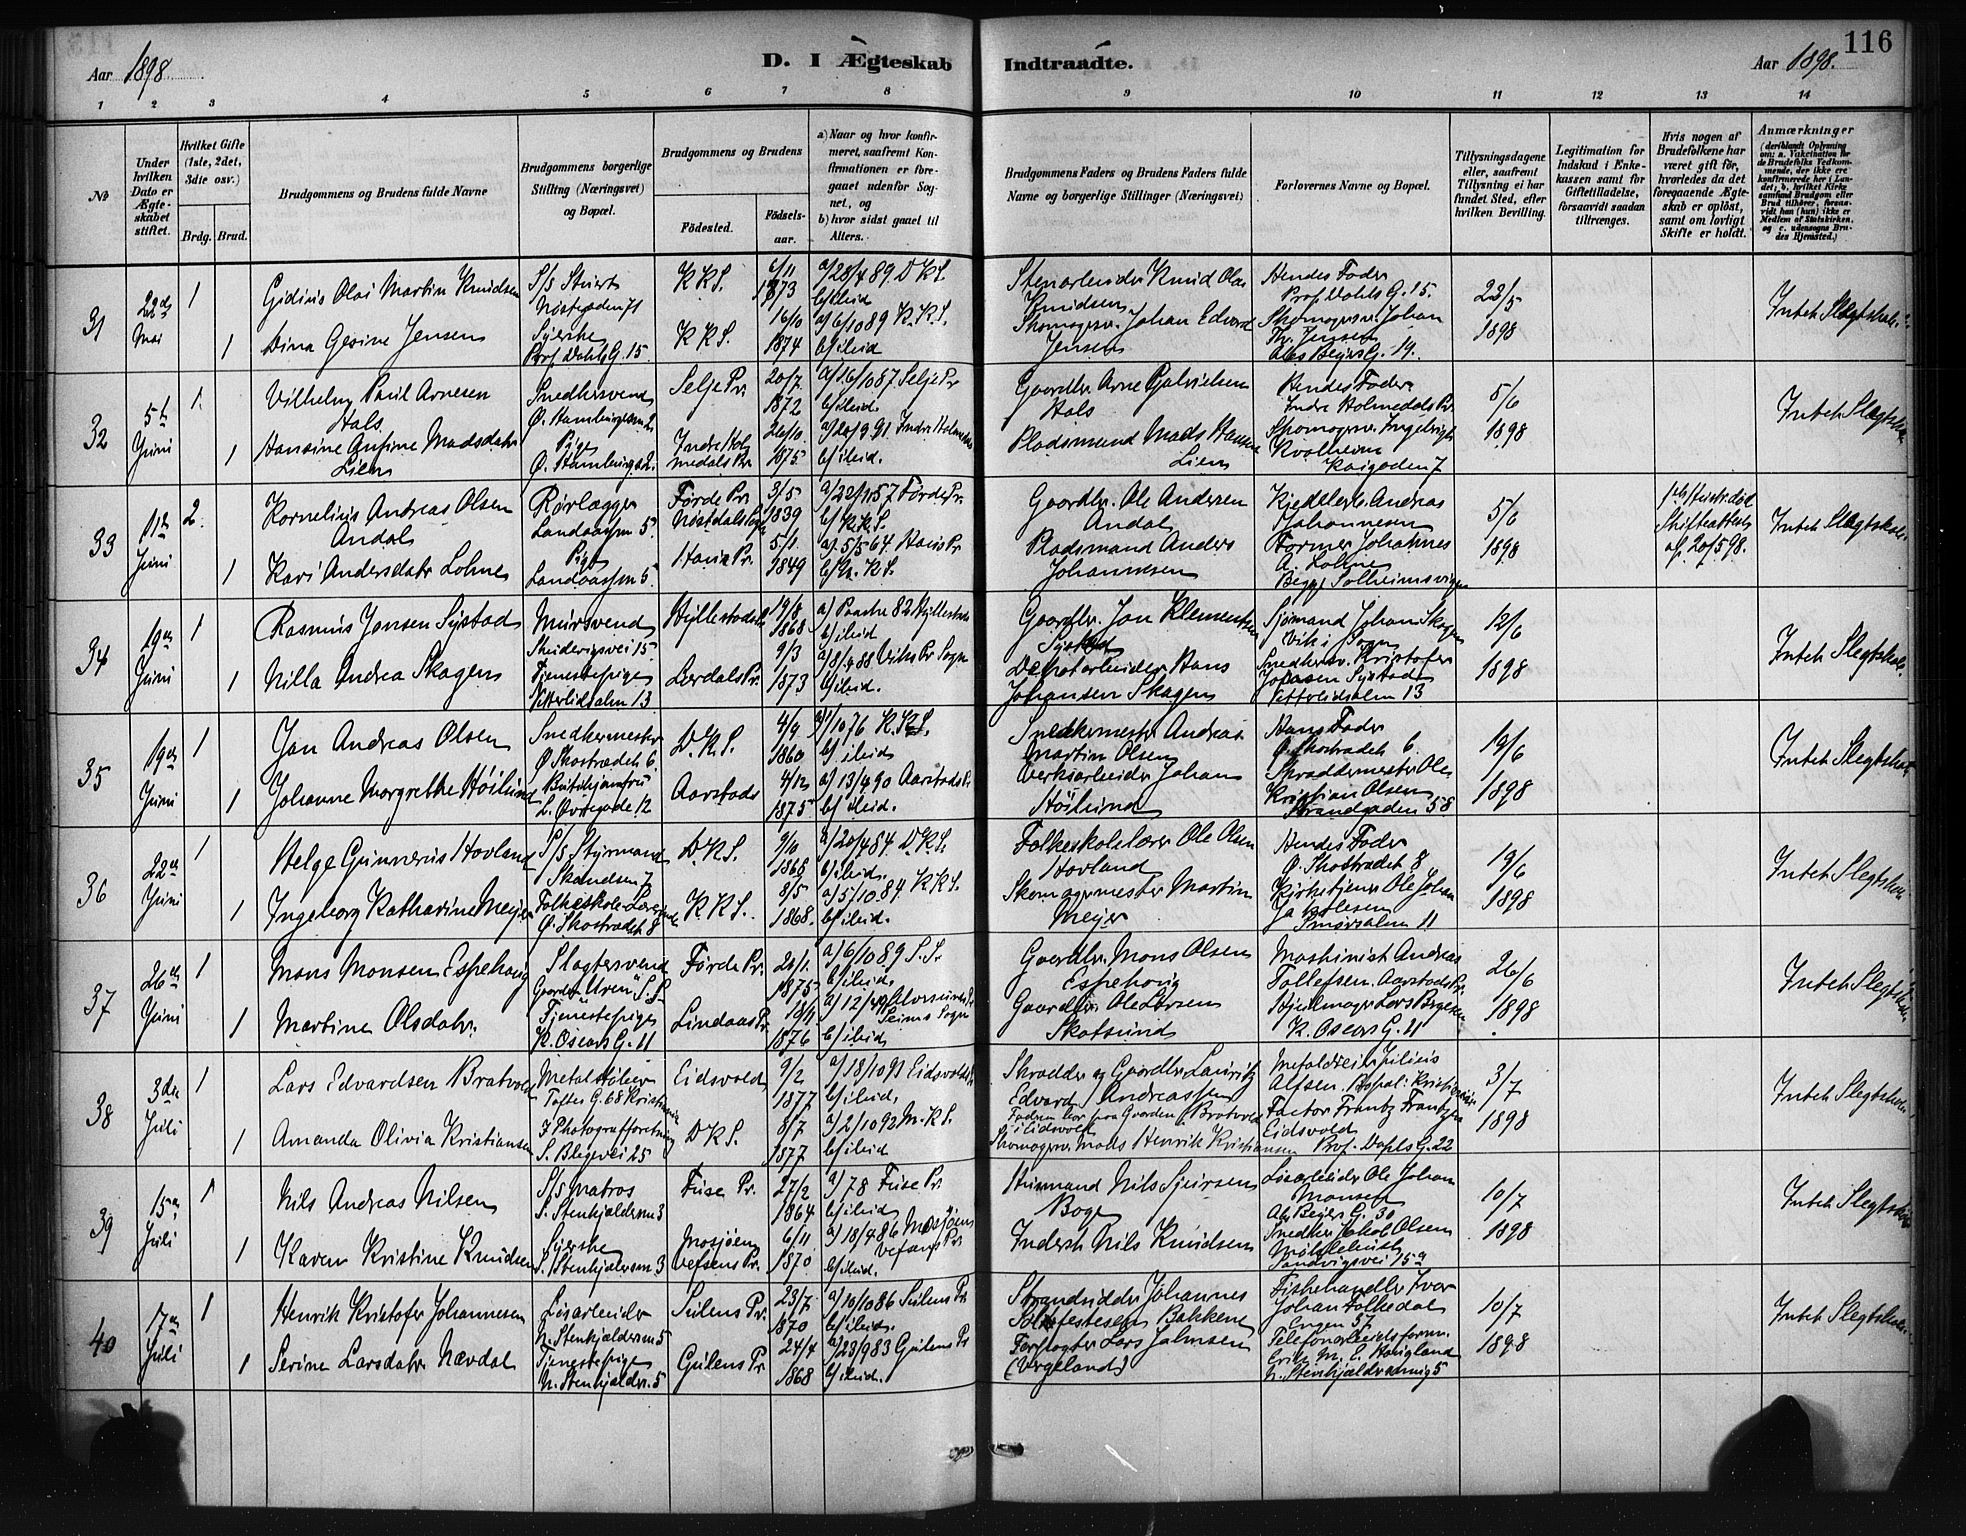 Aar 1898.
D. I Ægteskab
Indtraadte.
Aar 1898.
116
1 2 3 4 5 6 7 8 9 10 11 12 13 14
No
Under hvilken Dato er Ægteskabet stiftet.
Hvilket Gifte (1ste, 2det, 3die osv.)
Brdg. Brud.
Brudgommens og Brudens fulde Navne
Brudgommens borgerlige Stilling (Næringsvei) og Bopæl.
Brudgommens og Brudens
Födested.
Födselsaar.
a) Naar og hvor konfirmeret, saafremt Konfirmationen er foregaaet udenfor Sognet, og
b) hvor sidst gaaet til Alters.
Brudgommens Faders og Brudens Faders fulde Navne og borgerlige Stillinger (Næringsvei)
Forlovernes Navne og Bopæl.
Tillysningsdagene eller, saafremt Tillysning ei har fundet Sted, efter hvilken Bevilling.
Legitimation for Indskud i Enkekassen samt for Giftetilladelse, forsaavidt saadan tiltrænges.
Hvis nogen af Brudefolkene har været gift för, hvorledes da det foregaaende Ægteskab er oplöst, samt om lovligt Skifte er holdt.
Anmærkninger
31
22de Mai
1
Gidius Olai Martin Knudsen
S/s Stuert
Nøstegaden 71
K.K.S.
6/11 1873
a/28/4 89. D.K.S.
b/ ibid
Stenarbeider Knud Olai Knudsen
Hendes Fader
Prof. Dahls G. 15.
22/5 1898
Intet Slegtskab
1
Dina Gesine Jensen
Syerske
Prof. Dahls G. 15.
K.K.S.
16/10 1874
a/6/10 89 K.K.S.
b/ ibid
Skomagersv. Johan Edvard Jensen
Skomagersv. Johan
Th. Jensen
Abs. Beyers G. 19.
32
5te Juni
1.
Vilhelm Paul Arnesen Hals
Snedkersvend
Selje Pr.
20/7 1872
a/16/10 87 Selje Pr
b/ ibid.
Gaardbr. Arne Gabrielsen Hals
Hendes Fader
Indre Holmedals Pr.
5/6 1898
Intet Slegtskab
1
Hansine Madsdatr Lien
Pige
Indre Holmedals Pr.
26/10 1875.
a/20/9 91. Indre Holmedals
b/ ibid.
Pladsmand Mads Hansen Lien
Skomagersv. Ingebrigt Kvalheim
Kaigaden 7
33
11te Juni
2.
Kornelius Andreas Olsen Andal
Rørlægger
Landaasvn 5.
Førde Pr.
3/5 1839
a/22/11 57 Førde Pr.
b/ K.K.S.
Gaardbr. Ole Andersen Andal
Andreas Johannesen
5/6 1898.
Skifteattest af 20/5 98.
Intet Slegtskab
1
Kari Andersdatr Lohne
Pige
Landaasvn 5.
Haus Pr.
5/1. 1849
a/ 5/5 64. Haus Pr
Pladsmand Anders Johannesen
Former Johannes
A. Lohne
Solheimsvigen
34
19de Juni
1
Rasmus Jansen Systad
Mursvend
Hyllestad
19/8 1868
a/ Paaske 82 Hyllestad
b/ ibid
Gaardbr. Jan Klementsen Systad
Sjømand Johan Skagen
Vik i Sogn
12/6 1898
Intet Slegtskab.
1
Nilla Andrea Skagen
Tjenestepige
Vetterlidsalm 13
Lærdals Pr.
9/3 1873
a/8/4 88 Viks Pr Sogn
b/ ibid.
Hans Johansen Skagen
Snedkersv. Kristofer
Jansen Systad
Vetterlidsalm 13
35
19de Juni
1
Jan Andreas Olsen
Snedkermester
Ø. Skostrædet 6.
D.K.S.
4/9 1860
a/1/10 76 K.K.S.
b/ ibid
Snedkermester Andreas Martin Olsen
Hans Fader
Ø. Skostrædet 6.
19/6 1898
Intet Slegtskab
1
Johanne Margrethe Höilund
Butikjomfru
L. Øvregade 12
Aarstads
4/12 1875
a/13/4 90 Aarstads Pr
b/ ibid.
Verksarbeider Johan Höilund
Skræddermester Ole
Kristian Olsen
Strandgaden 58
36
22de Juni
1
Helge Gunnerus Hovland
S/s Styrmand
D.K.S.
9/10 1868
a/20/4 84. D.K.S.
b/ ibid.
Folkeskolelærer Ole Olsen Hovland
Hendes Fader
Ø. Skostrædet 8
19/6 1898
Intet Slegtskab
1
Ingeborg Katharine Meyer
Folkeskole-Lærerinde
Ø. Skostrædet 8
K.K.S.
8/5 1868.
a/5/10 84. K.K.S.
b/ ibid.
Skomagermester Martin Meyer
Kirketjener Ole Johan
Smørsalm. 11
37
26de Juni
1
Mons Monsen Espehaug
Slagtersvend
Gaarden Uren S.S.
Førde Pr.
1875
a/6/10 89 S.S.
b/ ibid.
Gaardbr. Mons Olsen Espehoug
Maskinist Andreas
Tollefsen. Aarstads Pr.
26/6 1898
Intet Slegtskab
1
Martine Olsdatr.
Tjenestepige
K. Oscars G. 11
Lindaas Pr.
18/11 1876
Seims Sogn
b/ ibid
Gaardbr. Ole Larsen Skotsund
Hjulmager Lars Børgesen
K. Oscars G. 11
38
3die Juli
1
Lars Edvardsen Bratvold
Toftes G. 68 Kristiania
Eidsvold
9/2 1877
a/18/10 91 Eidsvold Pr
b/ ibid.
Skrædder og Gaardbr. Lauritz Edvard Andreassen
Faderen bor paa Gaarden Bratvold
i Eidsvold
Julius
Alfsen. Kristiania
3/7 1898
Intet Slegtskab
1
Amanda Olivia Kristiansen
I Photografforretning
S. Blegevei 25
D.K.S.
8/7 1877
a/2/10 92 M.K.S.
b/ ibid
Skomagersv. Mads Henrik Kristiansen
Factor Frantz Frantzen
Eidsvold
Prof. Dahls G. 22
39
15de Juli
1
Nils Andreas Nilsen
S/s Matros
S. Stenkjældersm 3
Fuse Pr.
27/2 1864
a/ 78 Fuse Pr.
b/ ibid
Husmand Nils Sjursen Boge
Løsarbeider Ole Johan Monsen
Abs. Beyers G. 30
10/7 1898
Intet Slegtskab
1
Karen Kristine Knudsen
Syerske
S. Stenkjældersm 3
Mosjøen
Vefsens Pr.
6/11 1870
a/18/4 86 Mosjøen
Vefsens Pr.
b/ ibid.
Inderst Nils Knudsen
Snedker Jakob Olsen
Sandvigsvei 15a
40
17de Juli
1
Henrik Kristofer Johannesen
Løsarbeider
N. Stenkjældersm 5
Gulens Pr.
23/7 1870
a/10/10 86 Gulens Pr
b/ ibid.
Strandsidder Johannes Bakkene
Fiskehandler Ivar
Johan Folkedal
Engen 57
10/7 1898
Intet Slegtskab
1
Serine Larsdatr. Nævdal
Tjenestepige
N. Stenkjælders. 5
Gulens Pr
24/4 1868
a/23/9 83 Gulens Pr
b/ ibid.
Lars Jakobsen
(Vergeland)
Telefonarbeidsform.
Erik M. C. Haugland
N. Stenkjældersmug 5